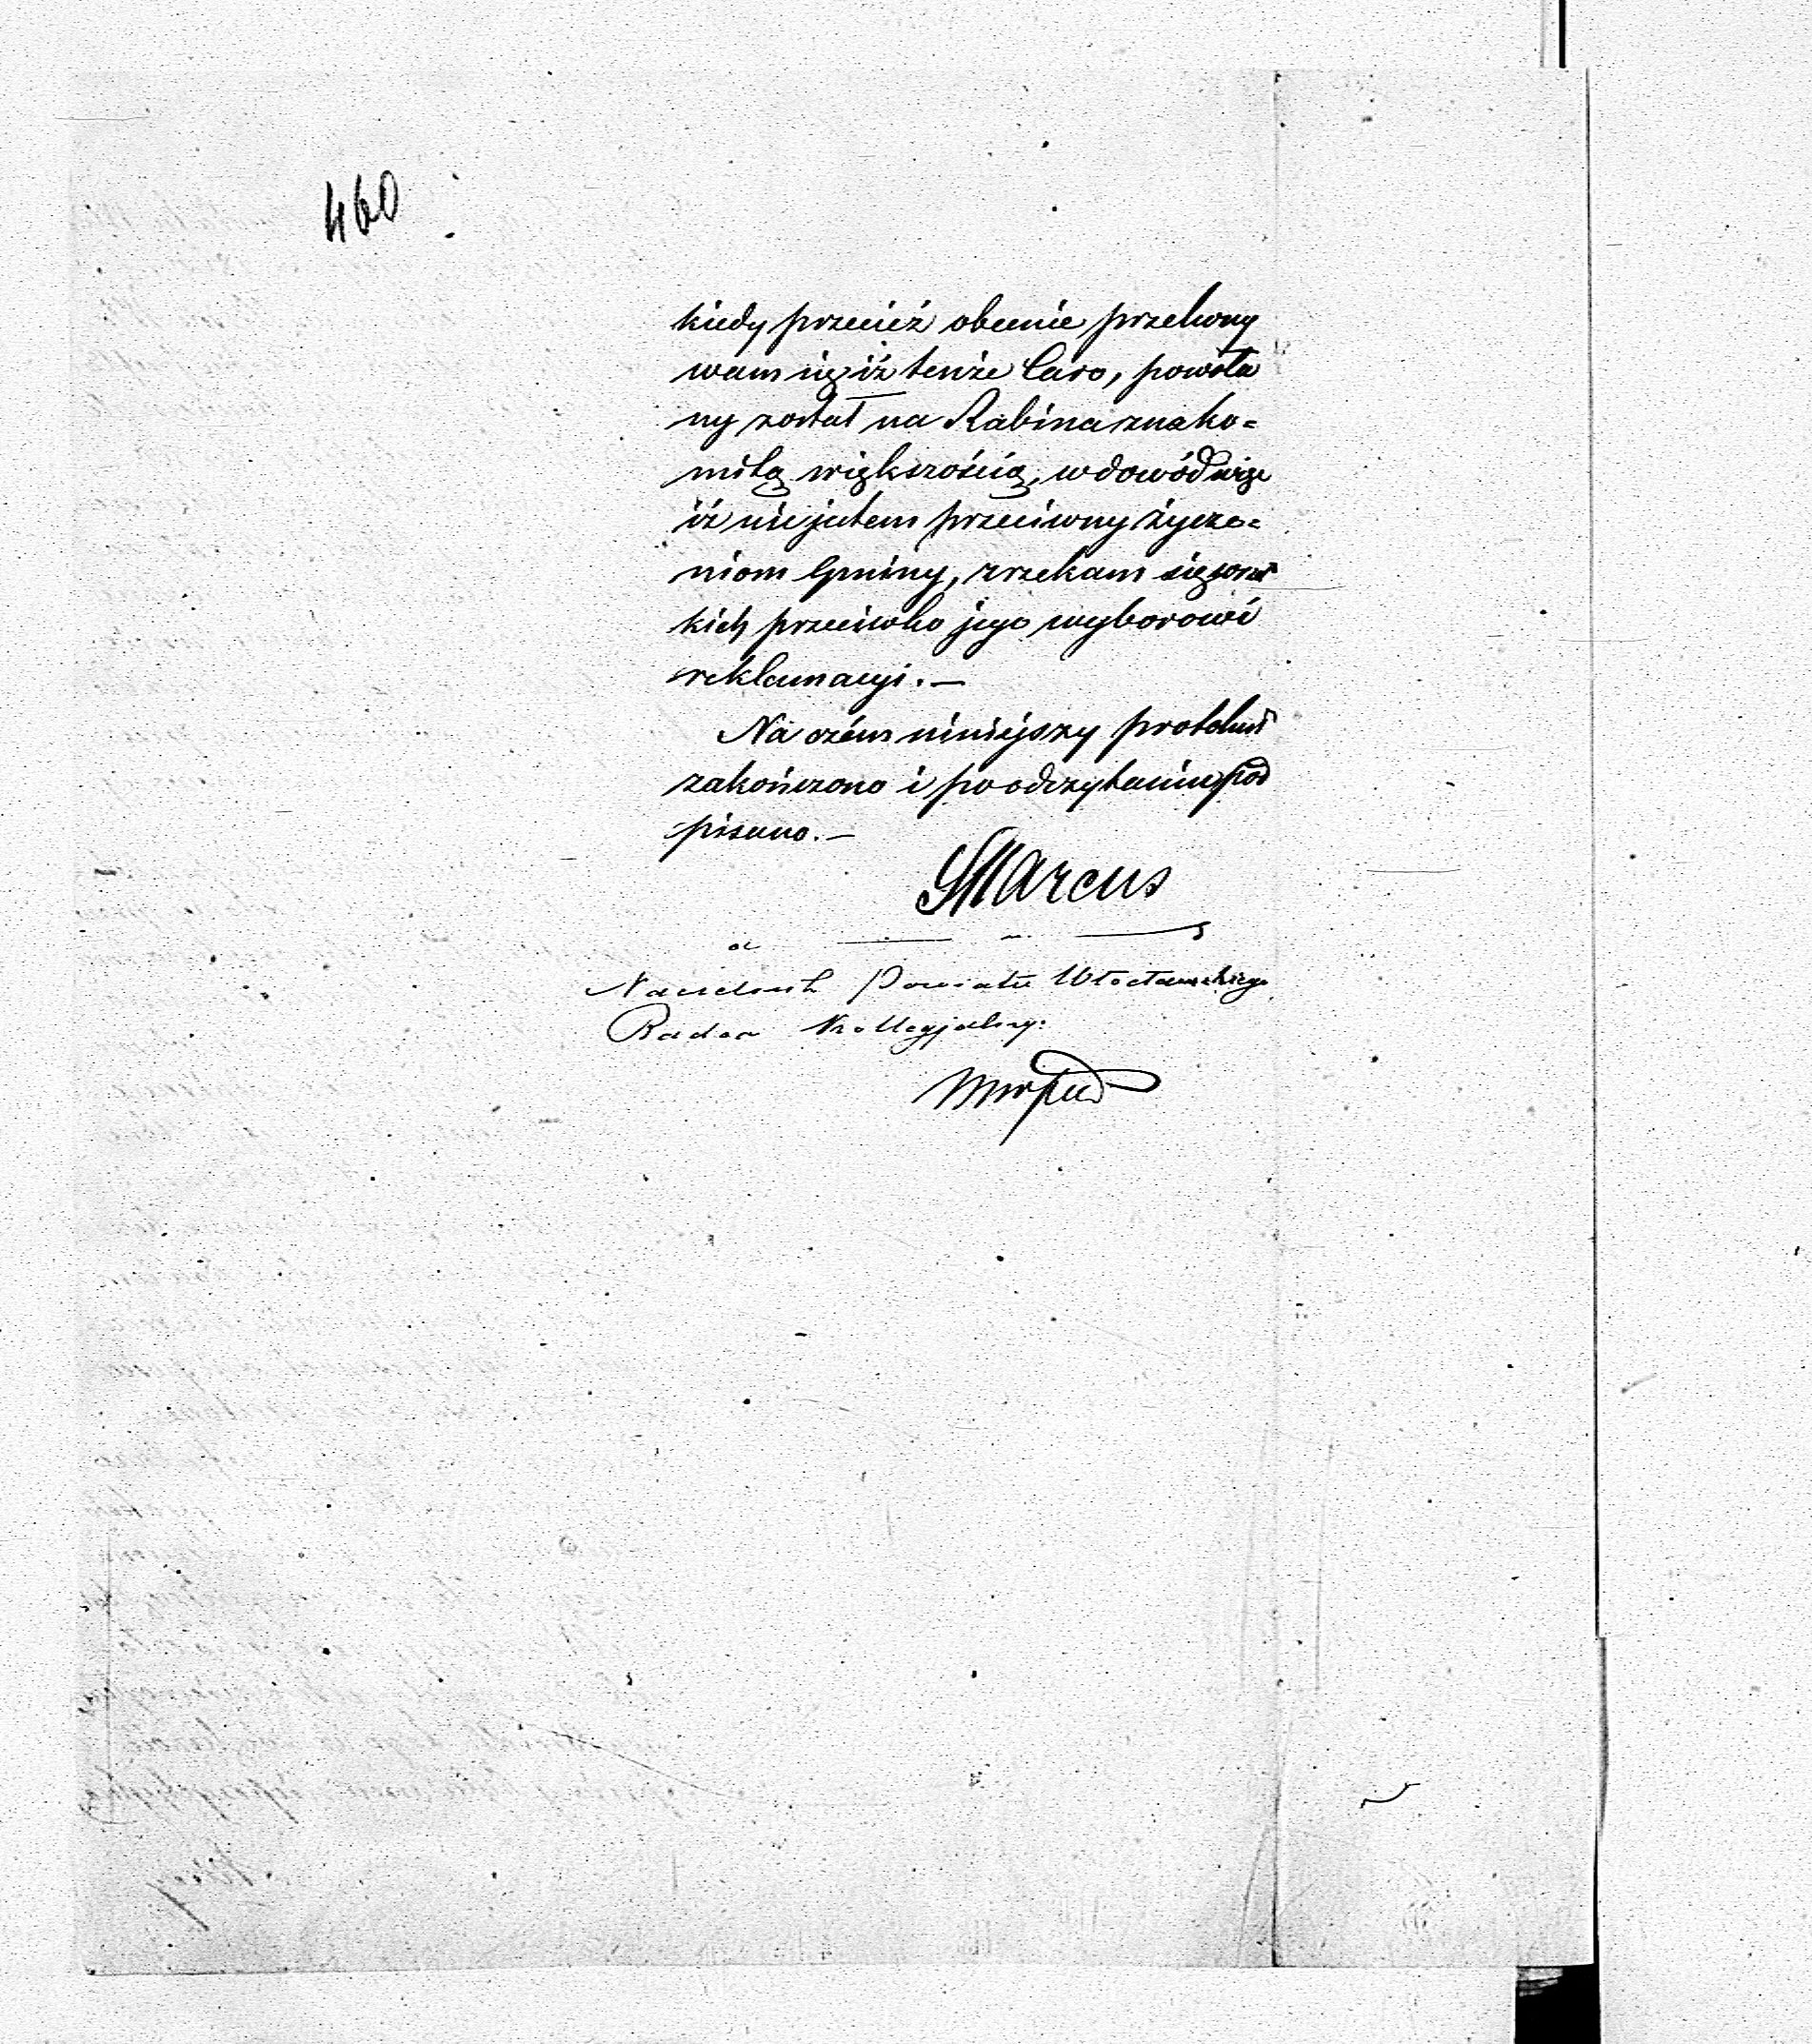 460
kiedy przecież obecnie przekony
wam się iż tenże Caro, powoła
ny został na Rabina znako=
mitą większością, w dowód więc
iż nie jestem przeciwny życze=
niom Gminy, zrzekam się wszel
kich przeciwko jego wyborowi
reklamacyi. —
Na czém niniejszy protokuł
zakończono i po odczytaniu pod
pisano. —
SMarcus
Naczelnik Powiatu Włocławskiego
Radca Kollegjalny: